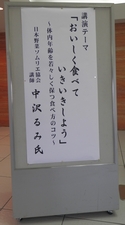 講演テーマ
「おいしく食べて
いきいきしよう」
～体内年齢を若々しく保つ食べ方のコツ～
日本野菜ソムリエ協会
講師
中沢るみ氏